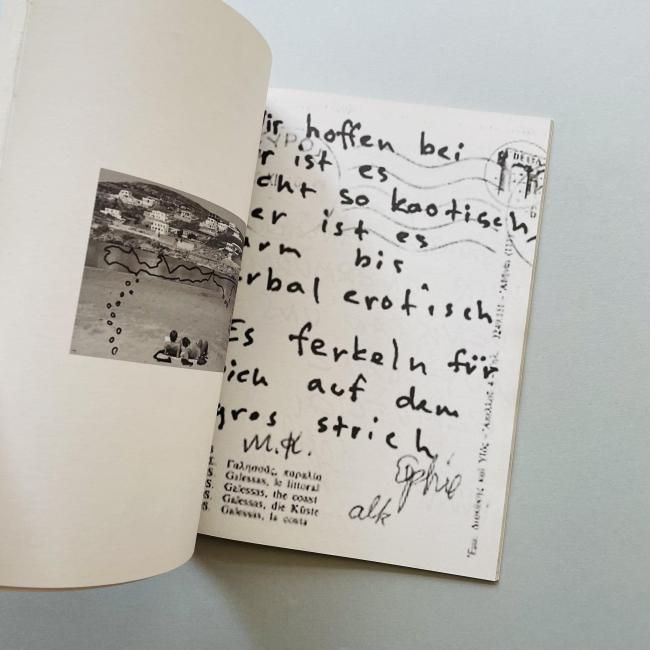 ir hoffen bei
r ist es
cht so kaotisch,
er ist es
arm bis
rbal erotisch
Es ferkeln für
ich auf dem
gros strich
M.K.
alk
S. Γαλησσάς, παραλία
S. Galessas, le littoral
S. Galessas, the coast
S. Galessas, die Küste
S. Galessas, la costa
DELTA